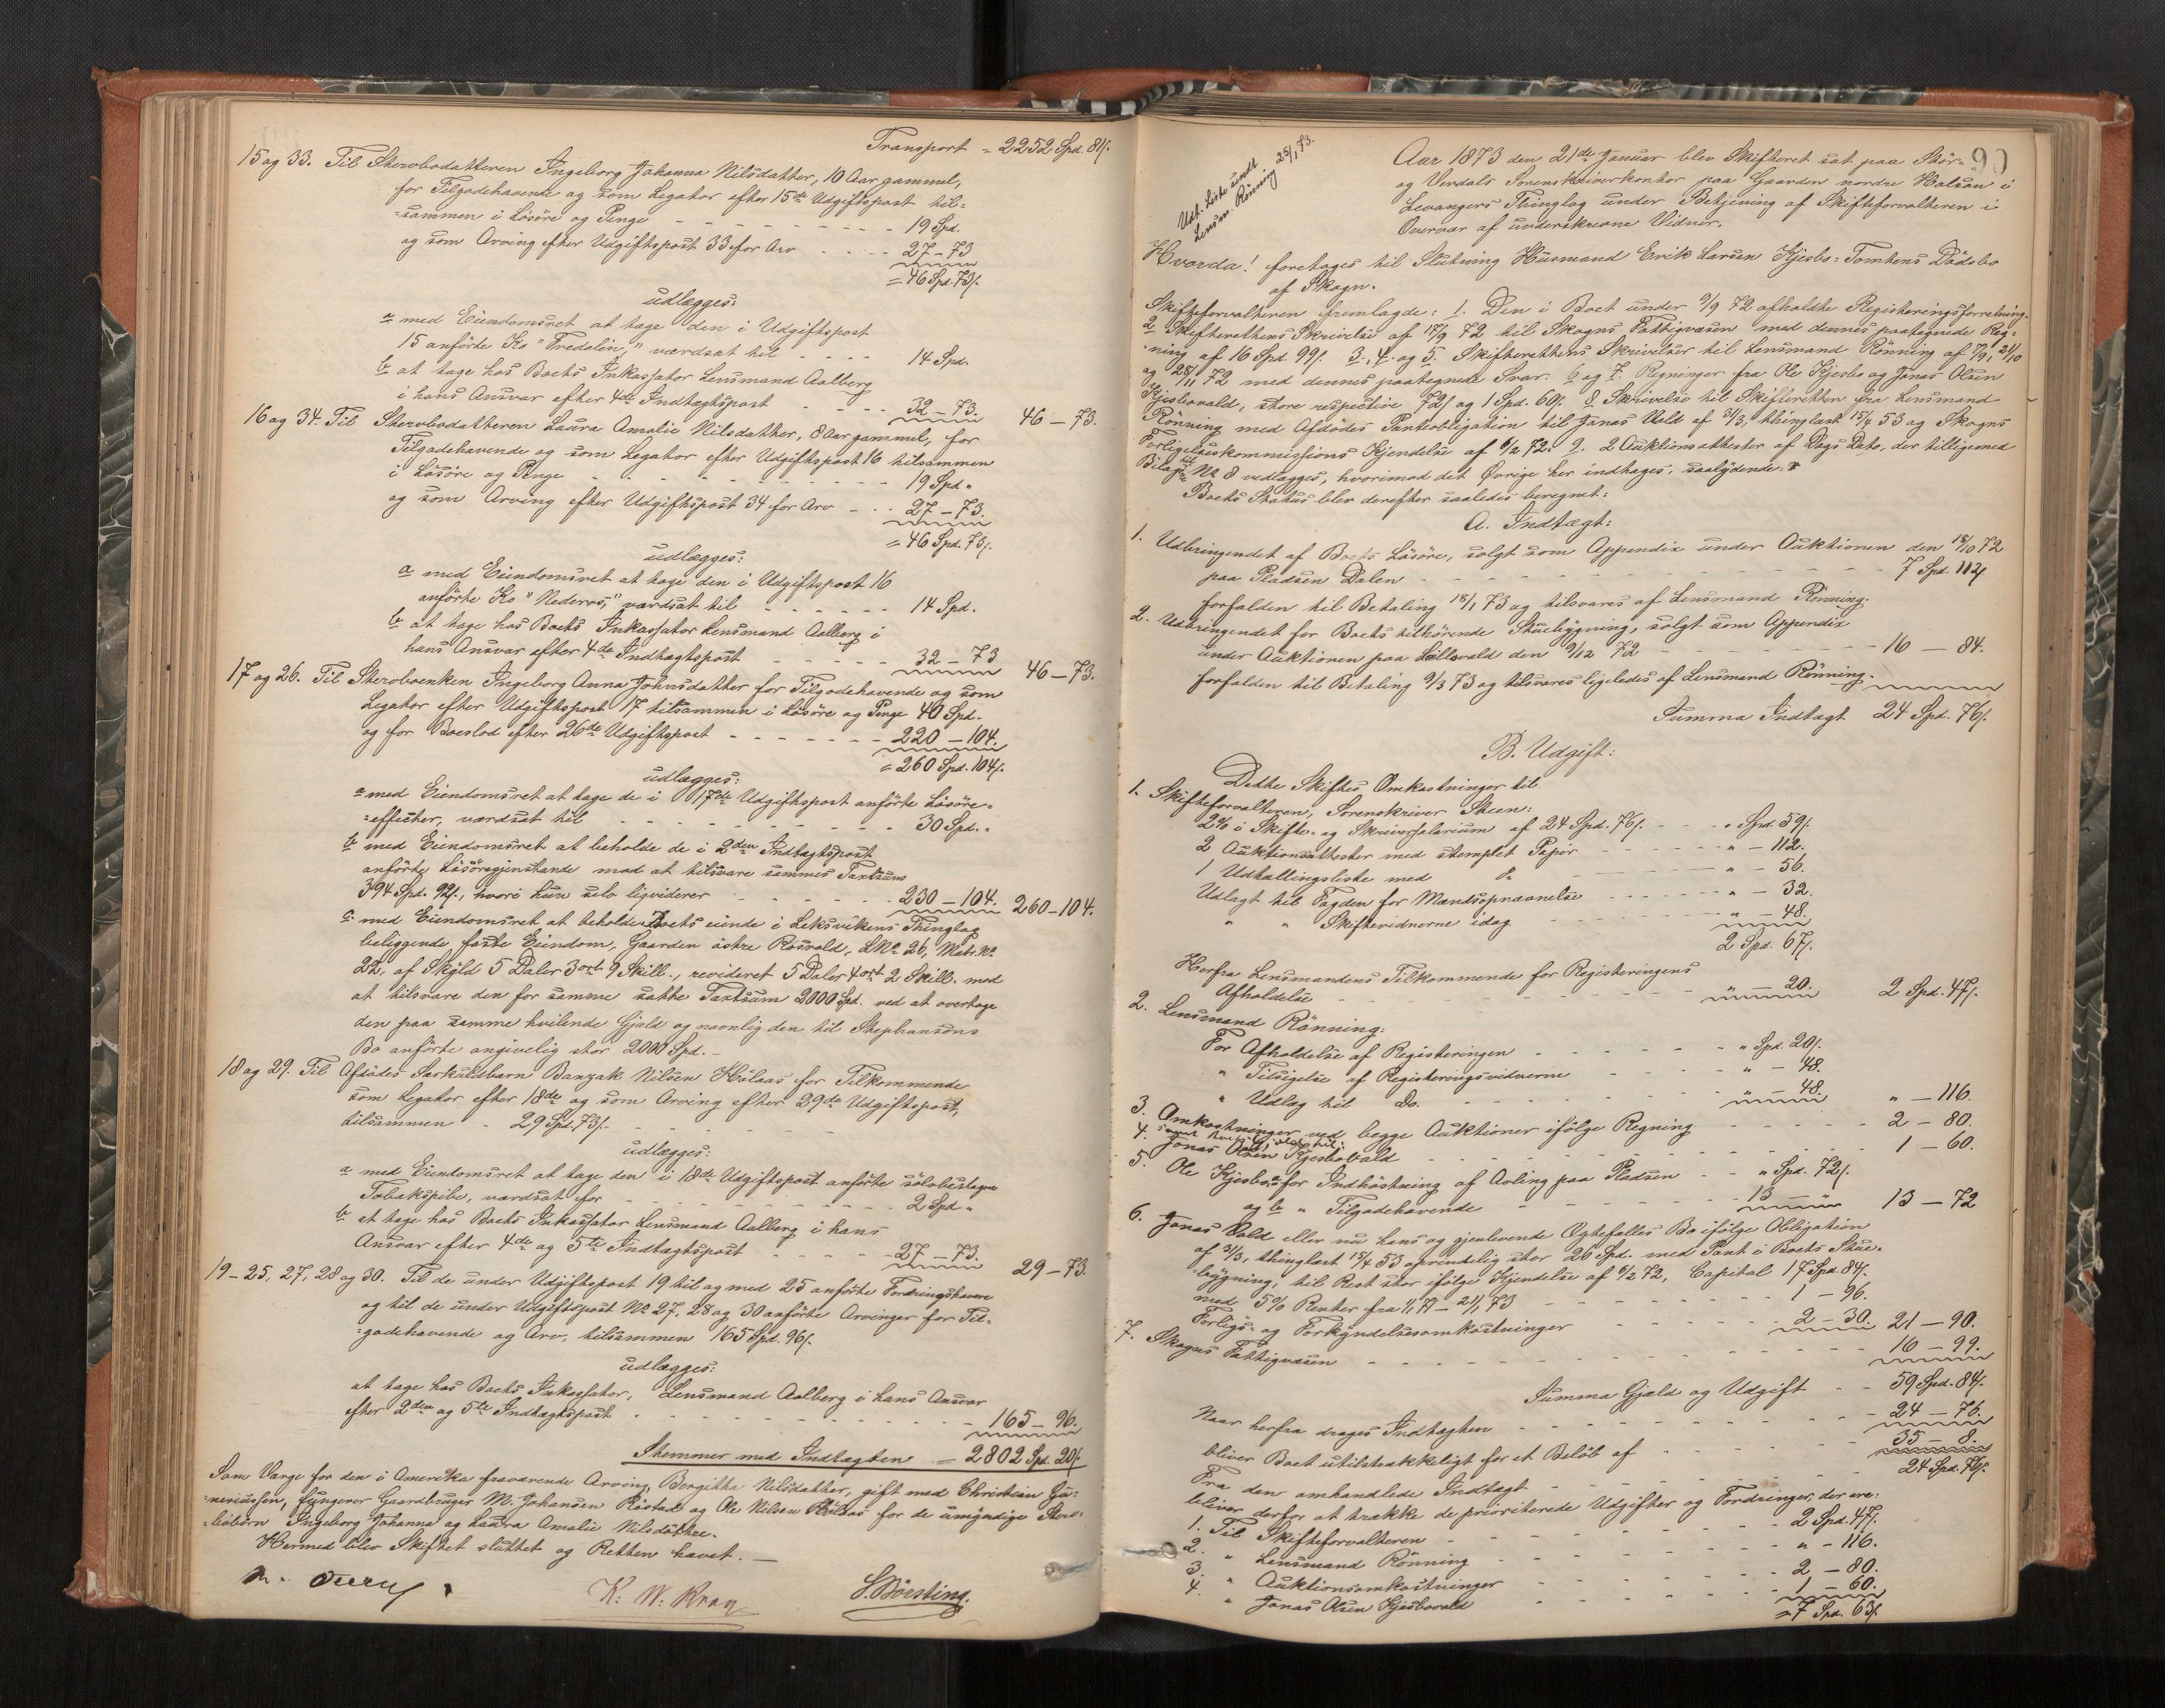 Transport = 2252 Spd. 81/.
15 og 33. Til Stervbodatteren Ingeborg Johanna Nilsdatter, 10 Aar gammel,
for Tilgodehavende og som Legator efter 15de Udgiftspost til=
=sammen i Lösöre og Penge - - - - 19 Spd.
og som Arving efter Udgiftspost 33 for Arv - - - - 27 - 73
= 46 Spd. 73/.
udlægges:
a med Eiendomsret at tage den i Udgiftspost
15 anförte Ko "Fredelin," værdsat til - - - - 14 Spd.
b at tage hos Boets Inkassator Lensmand Aalberg
i hans Ansvar efter 4de Indtægtspost - - - - 32 - 73. 46 - 73.
16 og 34. Til Stervbodatteren Laura Amalie Nilsdatter, 8 Aar gammel, for
Tilgodehavende og som Legator efter Udgiftspost 16 tilsammen
i Lösöre og Penge - - - - 19 Spd. "
og som Arving efter Udgiftspost 34 for Arv - - - 27 - 73.
= 46 Spd. 73/.
udlægges:
a med Eiendomsret at tage den i Udgiftspost 16
anförte Ko "Nederos," værdsat til - - - - 14 Spd.
b at tage hos Boets Inkassator Lensmand Aalberg i
hans Ansvar efter 4de Indtægtspost - - - - 32 - 73 46 - 73.
17 og 26. Til Stervboenken Ingeborg Anna Johnsdatter for Tilgodehavende og som
Legator efter Udgiftspost 17 tilsammen i Lösöre og Penge 40 Spd. -
og for Boeslod efter 26de Udgiftspost - - - - 220 - 104.
= 260 Spd. 104/.
udlægges:
a med Eiendomsret at tage de i 17de Udgiftspost anförte Lösöre=
=effecter, værdsat til - - - - 30 Spd. "
b med Eiendomsret at beholde de i 2den Indtægtspost
anförte Lösöregjenstande mod at tilsvare sammes Taxtsum
394 Spd. 92/., hvori hun selv ligviderer - - - - 230 - 104. 260 - 104.
c. med Eiendomsret at beholde Boets eiende i Leksvikens Thinglag
beliggende faste Eiendom, Gaarden östre Rösvold, LNo 26, Matr. No
22, af Skyld 5 Daler 3 ort 9 Skill., revideret 5 Daler 4 ort 2 Skill. mod
at tilsvare den for samme satte Taxtsum 2000 Spd. ved at overtage
den paa samme hvilende Gjæld og navnlig den til Stephansens
Bo anförte angivelig stor 2000 Spd. -
18 og 29. Til Afdödes Særkuldbarn Banzak Nilsen Hölaas for Tilkommende
som Legator efter 18de og som Arving efter 29de Udgiftspost,
tilsammen - 29 Spd. 73/. -
udlægges:
a med Eiendomsret at tage den i 18de Udgiftspost anförte sölvbeslagne
Tobakspibe, værdsat for - - - - 2 Spd. "
b at tage hos Boets Inkassator Lensmand Aalberg i hans
Ansvar efter 4de og 5te Indtægtspost - - - - 27 - 73. 29 - 73.
19 - 25, 27, 28 og 30. Til de under Udgiftspost 19 til og med 25 anförte Fordringshavere
og til de under Udgiftspost No 27, 28 og 30 anförte Arvinger for Til=
=godehavende og Arv, tilsammen 165 Spd. 96/.
udlægges:
at tage hos Boets Inkassator, Lensmand Aalberg i hans Ansvar
efter 2den og 5te Indtægtspost - - - - 165 - 96.
Stemmer med Indtægten = 2802 Spd. 20/.
Som Værge for den i Amerika fraværende Arving, Bergitte Nilsdatter, gift med Christian Gu=
=neriussen, fungerer Gaardbruger M. Johansen Ristad og Ole Nilsen Hölaas for de umyndige Sterv=
=bobörn Ingeborg Johanna og Laura Amalie Nilsdöttre.
Hermed blev Skiftet sluttet og Retten hævet. -
K. W. Kray S. Börsting.
90
Udt. Liste sendt
Lensm. Rönning 25/1 73.
Aar 1873 den 21de Januar blev Skifteret sat paa Stör=
og Værdals Sorenskriverkontor paa Gaarden nordre Halsan i
Levangers Thinglag under Betjening af Skifteforvalteren i
Overvær af underskrevne Vidner.
Hvorda! foretages til Slutning Husmand Erik Larsen Kjesbo-Tomtens Dödsbo
af Skogn.
Skifteforvalteren fremlagde: 1. Den i Boet under 9/9 72 afholdte Registeringsforretning.
2 Skifterettens Skrivelse af 17/9 72 til Skogns Fattigvæsen med dennes paategnede Reg=
=ning af 16 Spd. 99/. 3., 4. og 5. Skifterettens Skrivelser til Lensmand Rönning af 7/9, 21/10
og 28/11 72 med dennes paategnede Svar. 6 og 7. Regninger fra Ole Kjesbo og Jonas Olsen
Kjesbovald, store respective 72/ og 1 Spd. 60/. 8 Skrivelse til Skifteretten fra Lensmand
Rönning med Afdödes Pantobligation til Jonas Vold af 31/3, thinglæst 15/4 53 og Skogns
Forligelseskommissions Kjendelse af 6/2 72. 9. 2 Auktionsattester af Dags Dato, der tilligemed
Bilag No 8 vedlægges, hvorimod det Övrige her indtages, saalydende:
Boets Status blev derefter saaledes beregnet:
A. Indtægt:
1. Udbringendet af Boets Lösöre, solgt som Appendix under Auktionen den 18/10 72
paa Pladsen Dalen - - - - 7 Spd. 112/
forfalden til Betaling 18/1 73 og tilsvares af Lensmand Rönning.
2. Udbringendet for Boets tilhörende Stuebygning, solgt som Appendix
under Auktionen paa Lillevald den 9/12 72 - - - - 16 - 84.
forfalden til Betaling 9/3 73 og tilsvares ligeledes af Lensmand Rönning.
Summa Indtægt 24 Spd. 76/.
B. Udgift:
Dette Skiftes Omkostninger til
1. Skifteforvalteren, Sorenskriver Steen:
2% i Skifte- og Skriversalarium af 24 Spd. 76/. - - - " Spd. 59/.
2 Auktionsattester med stemplet Papir - - - - " - 112.
1 Udtallingsliste med do - - - - " - 56.
Udlagt til Fogden for Mandsopnævnelse - - - - " - 32.
" " Skiftevidnerne idag - - - - " - 48.
2 Spd. 67/.
Herfra Lensmandens Tilkommende for Registeringens
Afholdelse - - - - " - 20. 2 Spd. 47/.
2. Lensmand Rönning:
For Afholdelse af Registeringen - - - - " Spd. 20/.
" Tilsigelse af Registeringsvidnerne - - - - " - 48.
" Udlæg til Do. - - - - " - 48. " - 116.
3. Omkostninger ved begge Auktioner ifölge Regning - - - - 2 - 80.
4. Jonas Olsen Kjesbovald - - - - 1 - 60.
5. Ole Kjesbo a for Indhöstning af Avling paa Pladsen - - " Spd. 72/.
og b " Tilgodehavende - - - - 13 - " 13 - 72
6. Jonas Vold eller nu hans og gjenlevende Ægtefælles Bo ifölge Obligation
af 31/3, thinglæst 15/4 53 oprindelig stor 26 Spd. med Pant i Boets Stue=
=bygning, til Rest stor ifölge Kjendelse af 6/2 72, Capital 17 Spd. 84/.
med 5% Renter fra - 21/1 73 - - - - 1 - 96.
Forligs- og Forkyndelsesomkostninger - - - - 2 - 30. 21 - 90.
7. Skogns Fattigvæsen - - - - 16 - 99.
Summa Gjæld og Udgift - - 59 Spd. 84/.
Naar herfra drages Indtægten - - - - 24 - 76.
bliver Boet utilstrækkeligt for et Belöb af - - - - 35 - 8.
Fra den omhandlede Indtægt - - - - 24 Spd. 76/.
bliver derfor at trække de prioriterede Udgifter og Fordringer, der ere:
1. Til Skifteforvalteren - - - - 2 Spd. 47/.
2. " Lensmand Rönning - - - - " - 116.
3. " Auktionsomkostninger - - - - 2 - 80.
4. " Jonas Olsen Kjesbovald - - - - 1 - 60.
= 7 Spd. 63/.